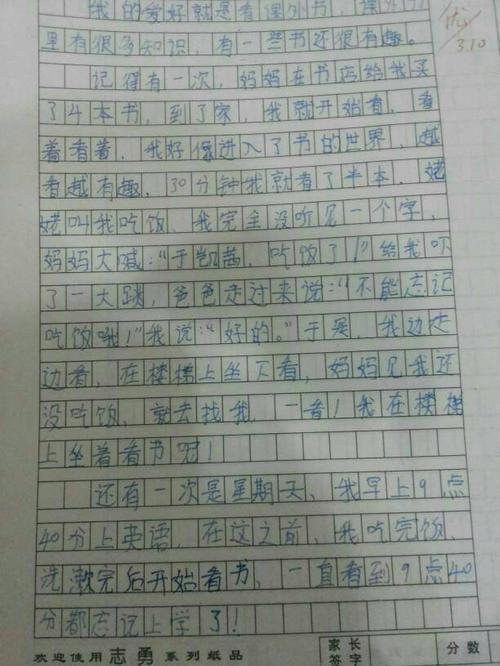 我的爱好就是看课外书，课外书
里有很多知识，有一些书还很有趣。
记得有一次，妈妈在书店给我买
了4本书，到了家，我就开始看，看
着看着，我好像进入了书的世界，越
看越有趣，30分钟我就看了半本，姥
姥叫我吃饭，我完全没听见一个字，
妈妈大喊：“于凯茜，吃饭了！”给我吓
了一大跳，爸爸走过来说：“不能忘记
吃饭哦！”我说：“好的。”于是，我边走
边看，在楼梯上坐下看，妈妈见我还
没吃饭，就去找我，一看！我在楼梯
上坐着看书呢！
还有一次是星期天，我早上9点
40分上英语，在这之前，我吃完饭，
洗漱完后开始看书，一直看到9点40
分都忘记上学了！
优
3.10
欢迎使用志勇系列纸品
家长签字
分数